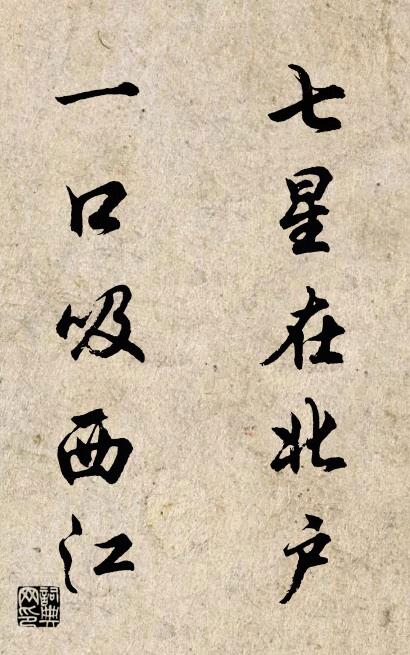 七星在北户
一口吸西江
詞典网印